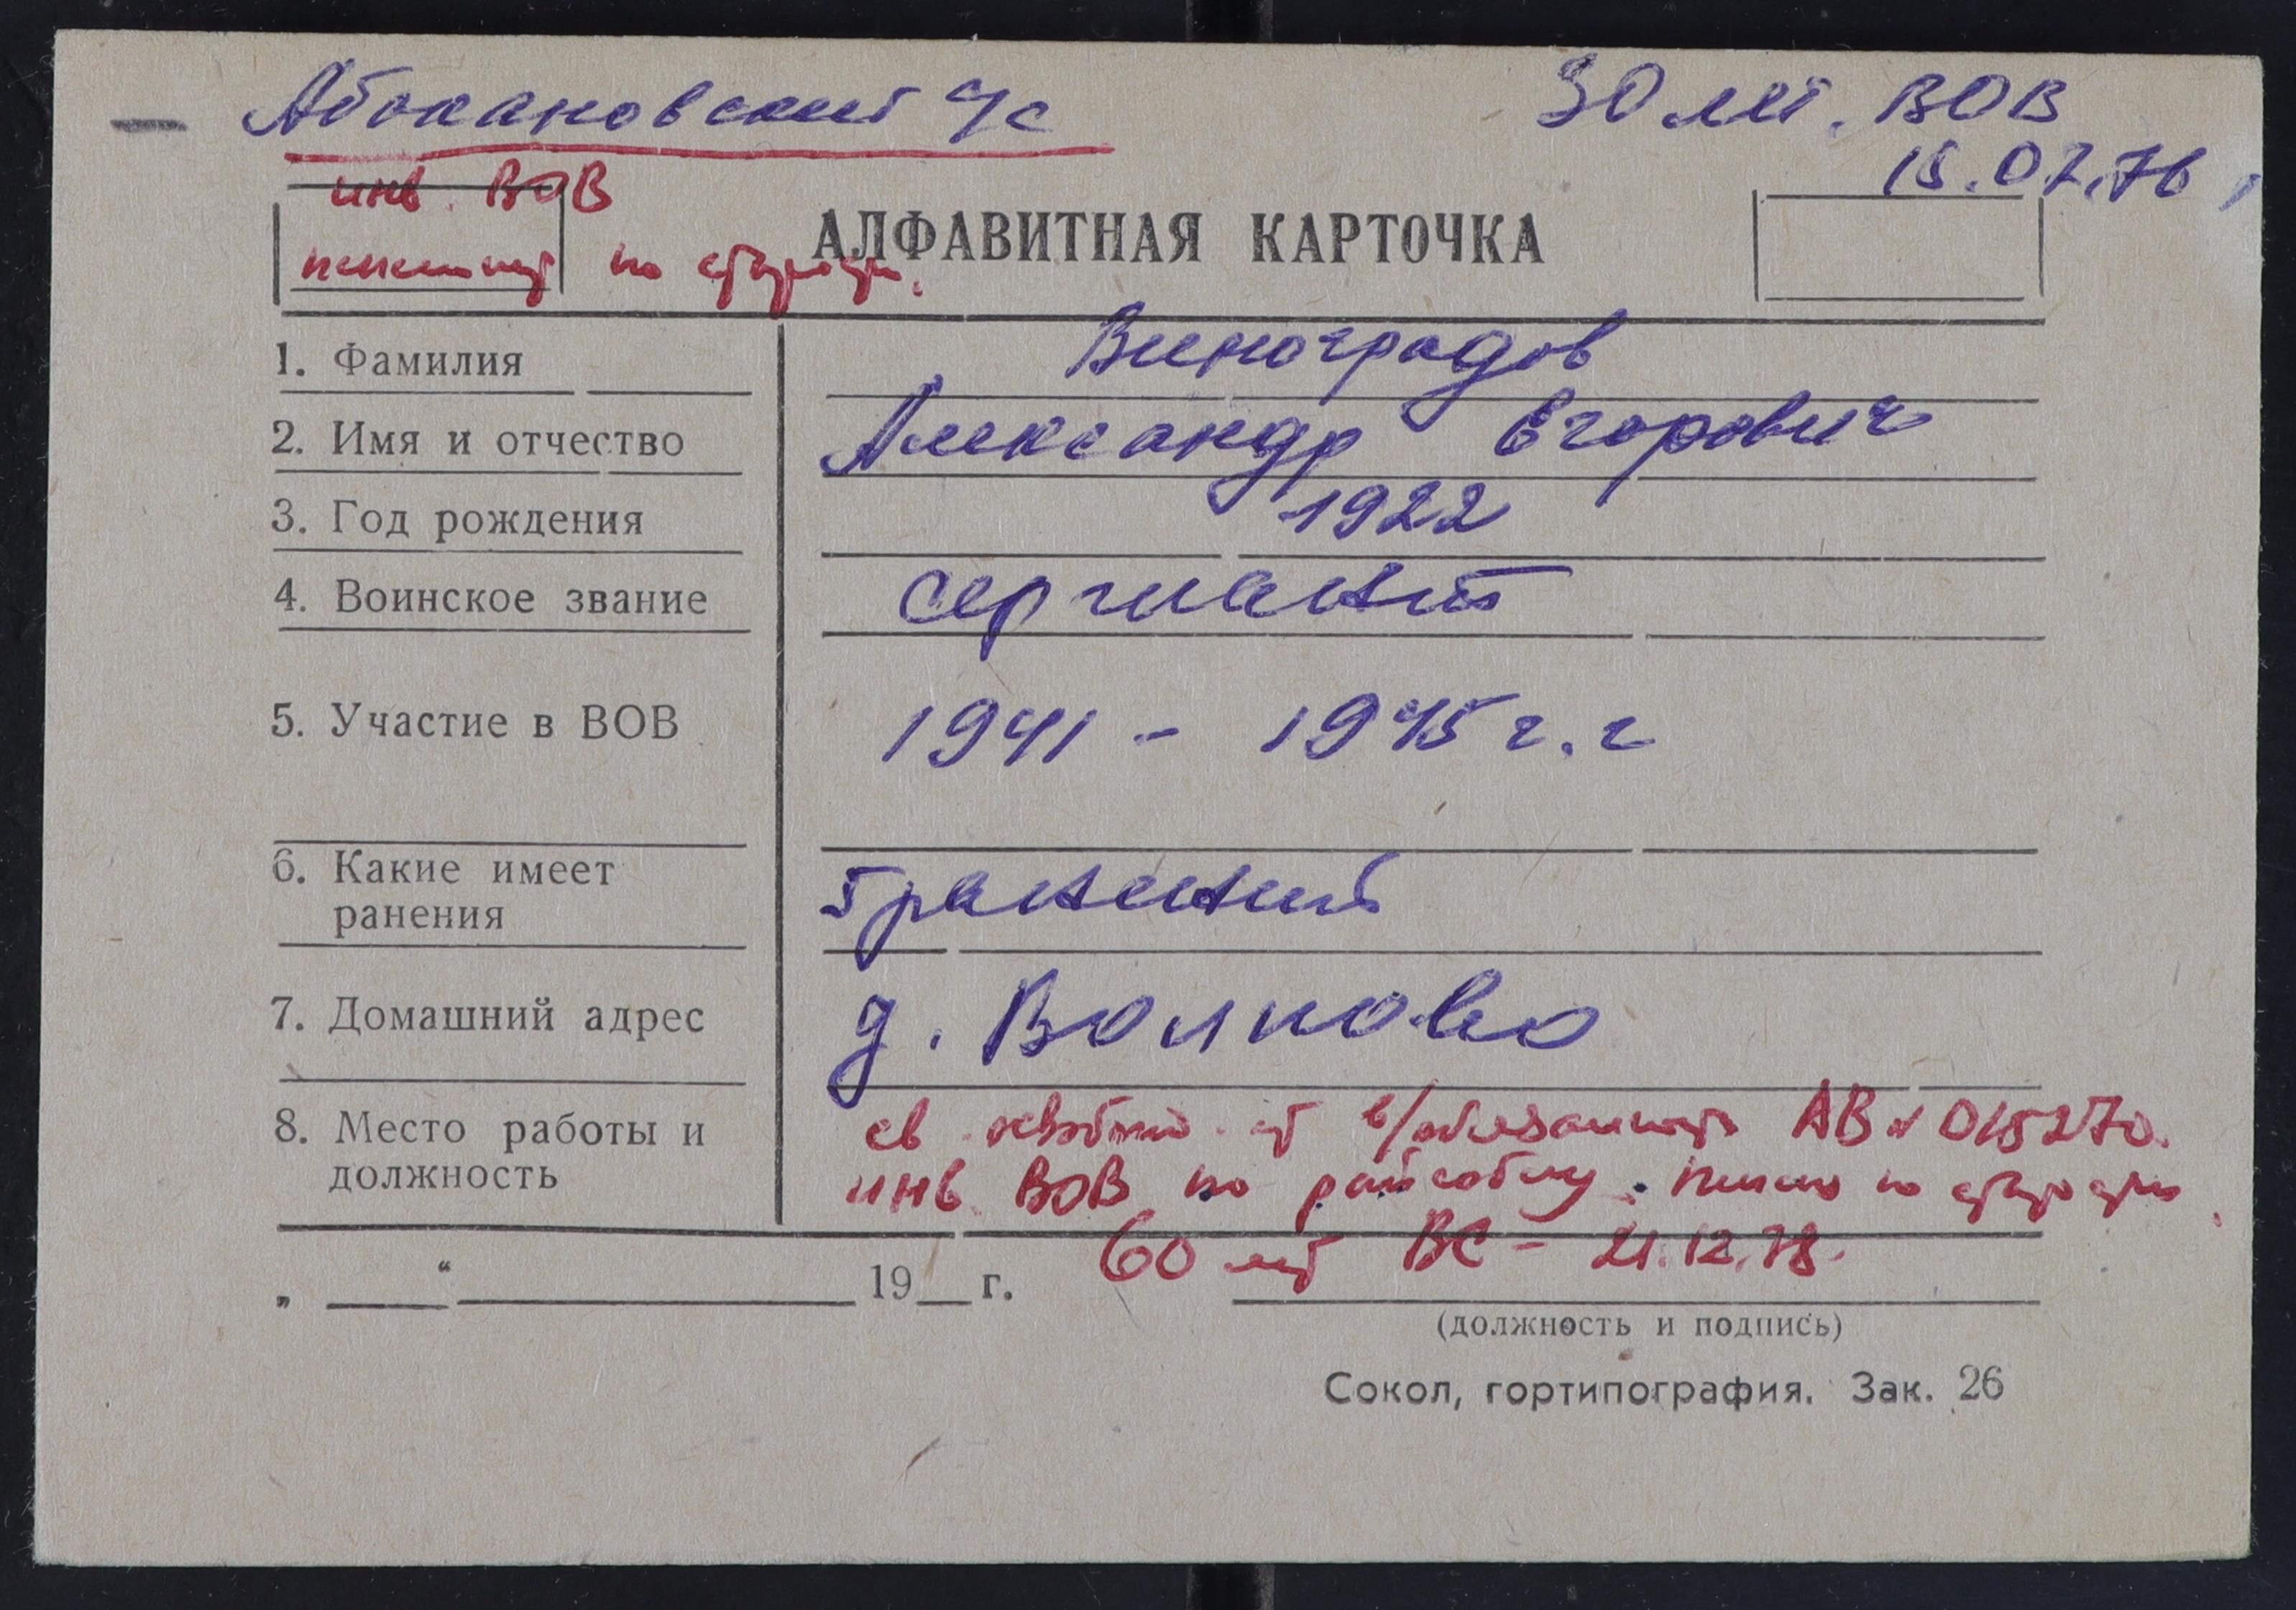 Абакановский ч/с
30 лет. ВОВ
15.07.76
инв. ВОВ
АЛФАВИТНАЯ КАРТОЧКА
по
1. Фамилия Виноградов
2. Имя и отчество Александр Егорович
3. Год рождения 1922
4. Воинское звание сержант
5. Участие в ВОВ 1941 - 1945 г.г
6. Какие имеет
ранения
7. Домашний адрес д. Волково
8. Место работы и
должность
св. от в/обязанности АВ № 015270.
инв. ВОВ по райсобесу. по
60 лет ВС - 21.12.78.
„ “ 19 г.
(должность и подпись)
Сокол, гортипография. Зак. 26